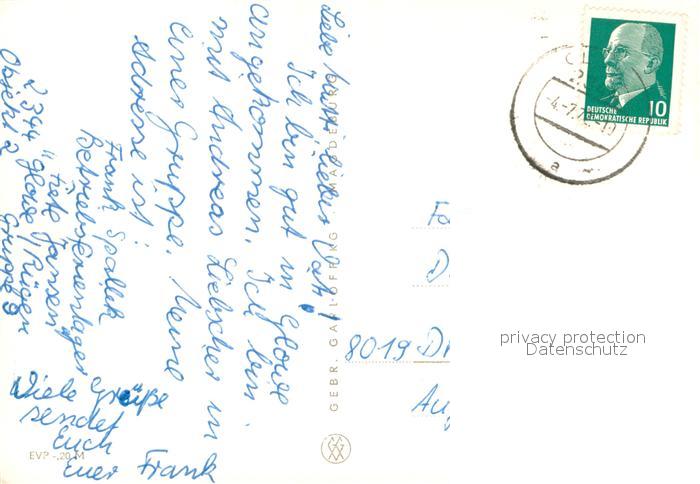 Liebe Mutti, lieber Vati!
Ich bin gut in Glowe
angekommen. Ich bin
mit Andreas Liebscher in
einer Gruppe. Meine
Adresse ist:
Frank Spallek
Betriebsferienlager
"Fiete Jansen"
2344 Glowe/Rügen
Objekt 2 Gruppe 9
Viele Grüße
sendet
Euch
Euer Frank
EVP -,20 M
8019
DEUTSCHE
DEMOKRATISCHE REPUBLIK
10
-4.-7.
a
privacy protection
Datenschutz